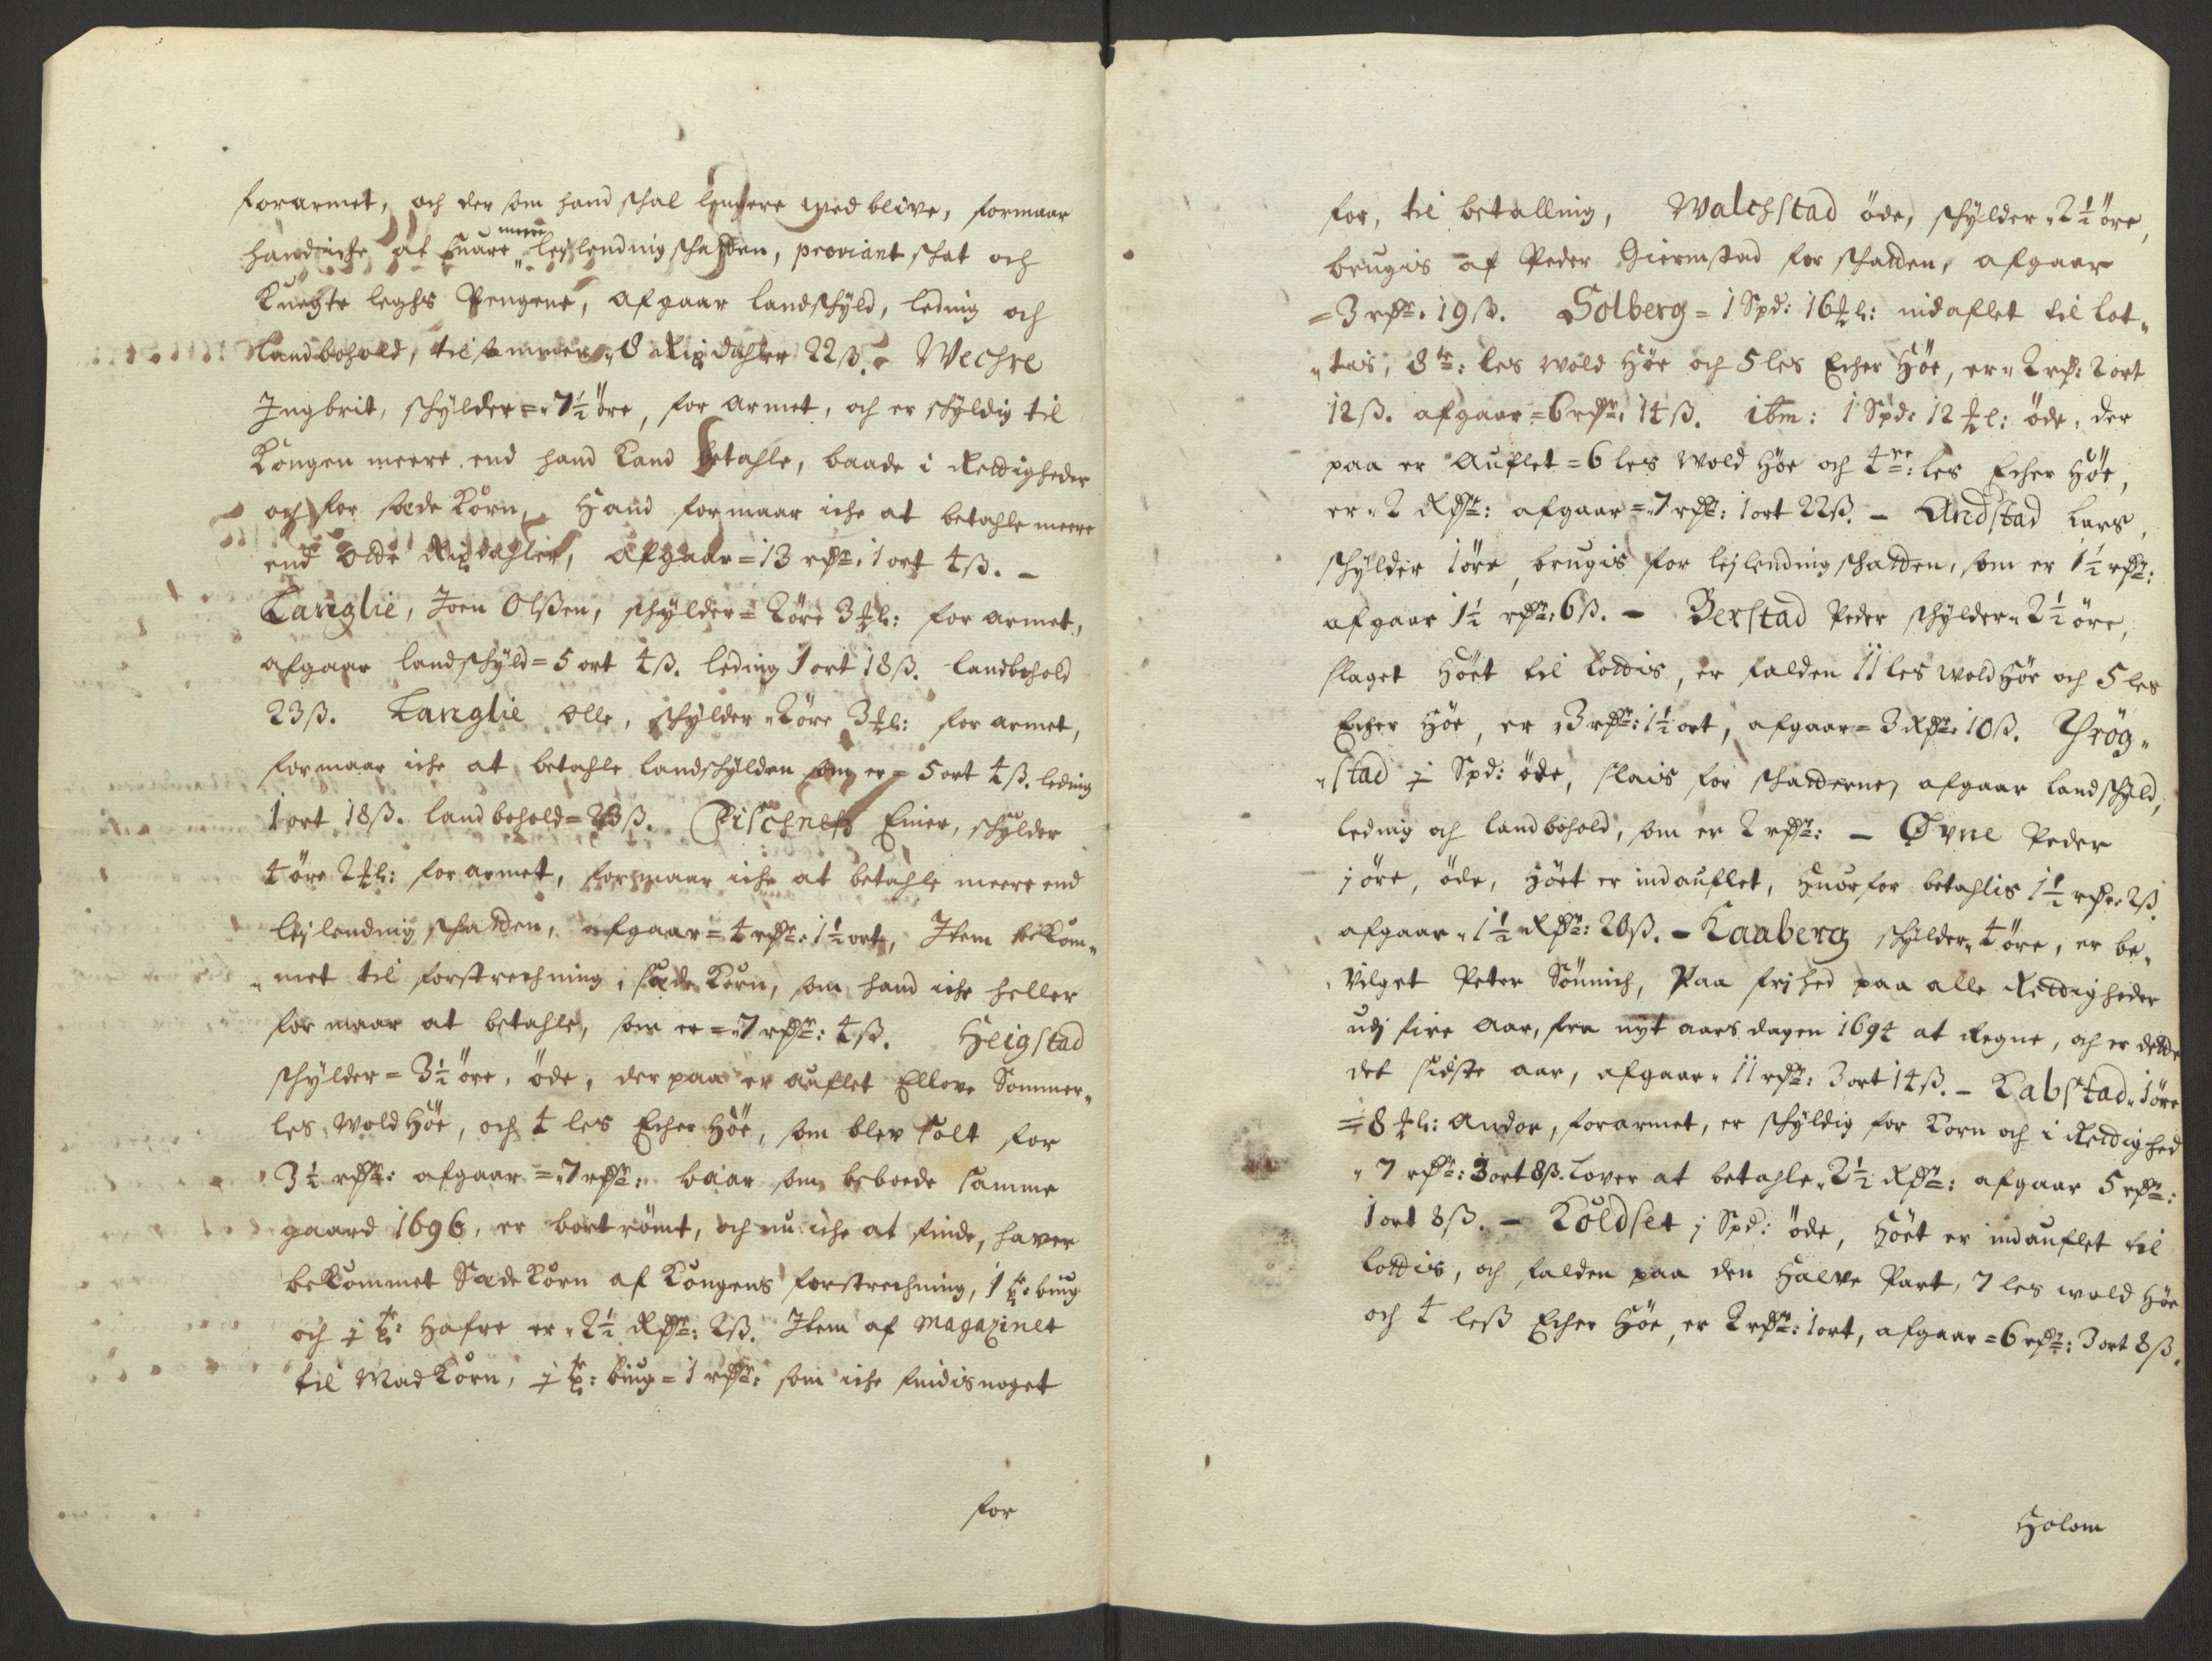 forarmet, och der som hand schal lengere wed blive, formaar
hand iche at suare meere leilending schatten, proviant schat och
Knegte leghs Pengene, afgaar landschyld, leding och
Landbohold, tilsammen 8 Rixdahler 22 ß. Wechre
Ingbrit, schylder = 7½ öre, for armet, och er schyldig til
Kongen meere end hand Kand betahle, baade i Rettigheder
och for sæde Korn, Hand formaar iche at betahle meere
end Otte Rixdahler, afgaar = 13 rdr: 1 ort 4 ß. –
Langlie, Joen Olßen, schylder = 2 öre 3 ℔l: for armet,
afgaar landschyld = 5 ort 4 ß. leding 1 ort 18 ß. landbohold
23 ß. Langlie Olle, schylder 2 öre 3 ℔l: for armet,
formaar iche at betahle landschylden som er = 5 ort 4 ß. leding
1 ort 18 ß. landbohold = 23 ß. Fischnes Einer, schylder
4 öre 2 ℔l: for armet, formaar iche at betahle meere end
leilending schatten, afgaar = 4 rdr: 1½ ort, Item bekom„
„met til forstrechning i sæde Korn, som hand iche heller
formaar at betahle, som er = 7 rdr: 4 ß. Heigstad
schylder = 3½ öre, öde, der paa er auflet Ellove Sommer„
les Wold Höe, och 4 les Echer Höe, som blev solt for
3½ rdr: afgaar = 7 rdr: baar som beboede samme
gaard 1696, er bort römt, och nu iche at finde, haver
bekommet Sæde Korn af Kongens forstrechning, 1 tr: biug
och j tr: Hafre er 2½ Rdr: 2 ß. Item af Magazinet
til Mad Korn, j tr: biug = 1 rdr: som iche findis noget
for
for, til betalling, Walchstad öde, schylder 2½ öre,
brugis af Peder Giermstad for schatten, afgaar
= 3 rdr: 19 ß. Solberg = 1 Spd: 16 ℔l: indaflet til lot„
„tis, 8te: les Wold Höe och 5 les Echer Höe, er 2 rd: 2 ort
12 ß. afgaar = 6 rdr: 14 ß. ibm: 1 Spd: 12 ℔l: öde, der
paa er Auflet = 6 les Wold Höe och 4re: les Echer Höe,
er 2 Rdr: afgaar = 7 rdr: 1 ort 22 ß. – Andstad Lars,
schylder 1 öre, brugis for leilending schatten, som er 1½ rdr:
afgaar 1½ rdr: 6 ß. – Berstad Peder schylder 2½ öre,
slaget Höet til lottis, er falden 11 les wold Höe och 5 les
Echer Höe, er 3 rdr: 1½ ort, afgaar = 3 Rdr: 10 ß. Thrög„
„stad j Spd: öde, slais for schatterne, afgaar landschyld,
leding och landbohold, som er 2 rdr: – Øvne Peder
j öre, öde, Höet er indauflet, Huorfor betahlis 1½ rdr: 2 ß.
afgaar 1½ Rdr: 20 ß. – Kaaberg schylder 4 öre, er be„
vilget Peter Sönnich, Paa frihed paa alle Rettigheder
udj fire Aar, fra nyt aars dagen 1694 at Regne, och er dette
det sidste aar, afgaar 11 rdr: 3 ort 14 ß. – Kabstad 1 öre
= 8 ℔l: Andor, forarmet, er schyldig for Korn och i Rettighed
7 rdr: 3 ort 8 ß. Lover at betahle 2½ Rdr: afgaar 5 rdr:
1 ort 8 ß. – Koldset j Spd: öde, Höet er indauflet til
lottis, och falden paa den Halve Part, 7 les wold Höe
och 4 leß Echer Höe, er 2 rdr: 1 ort, afgaar = 6 rdr: 3 ort 8 ß.
Holom